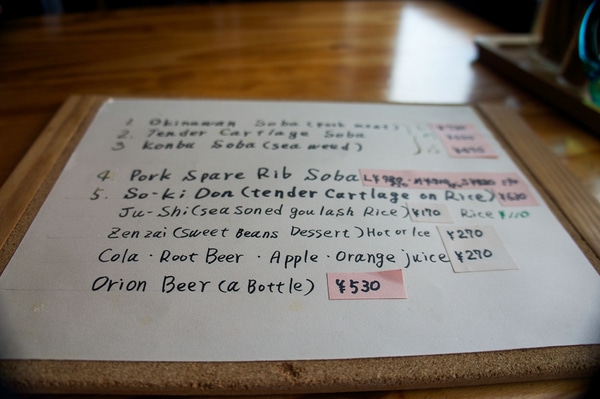 1. Okinawan Soba (Pork meat)
2. Tender Cartlage Soba
3 Konbu Soba (sea weed)
4 Pork Spare Rib Soba
5. So-ki Don (tender Cartlage on Rice)
Ju-Shi (seasoned goulash Rice) ¥170 Rice ¥110
Zenzai (sweet Beans Dessert) Hot or Ice ¥270
Cola · Root Beer · Apple · Orange juice ¥270
Orion Beer (a Bottle) ¥530